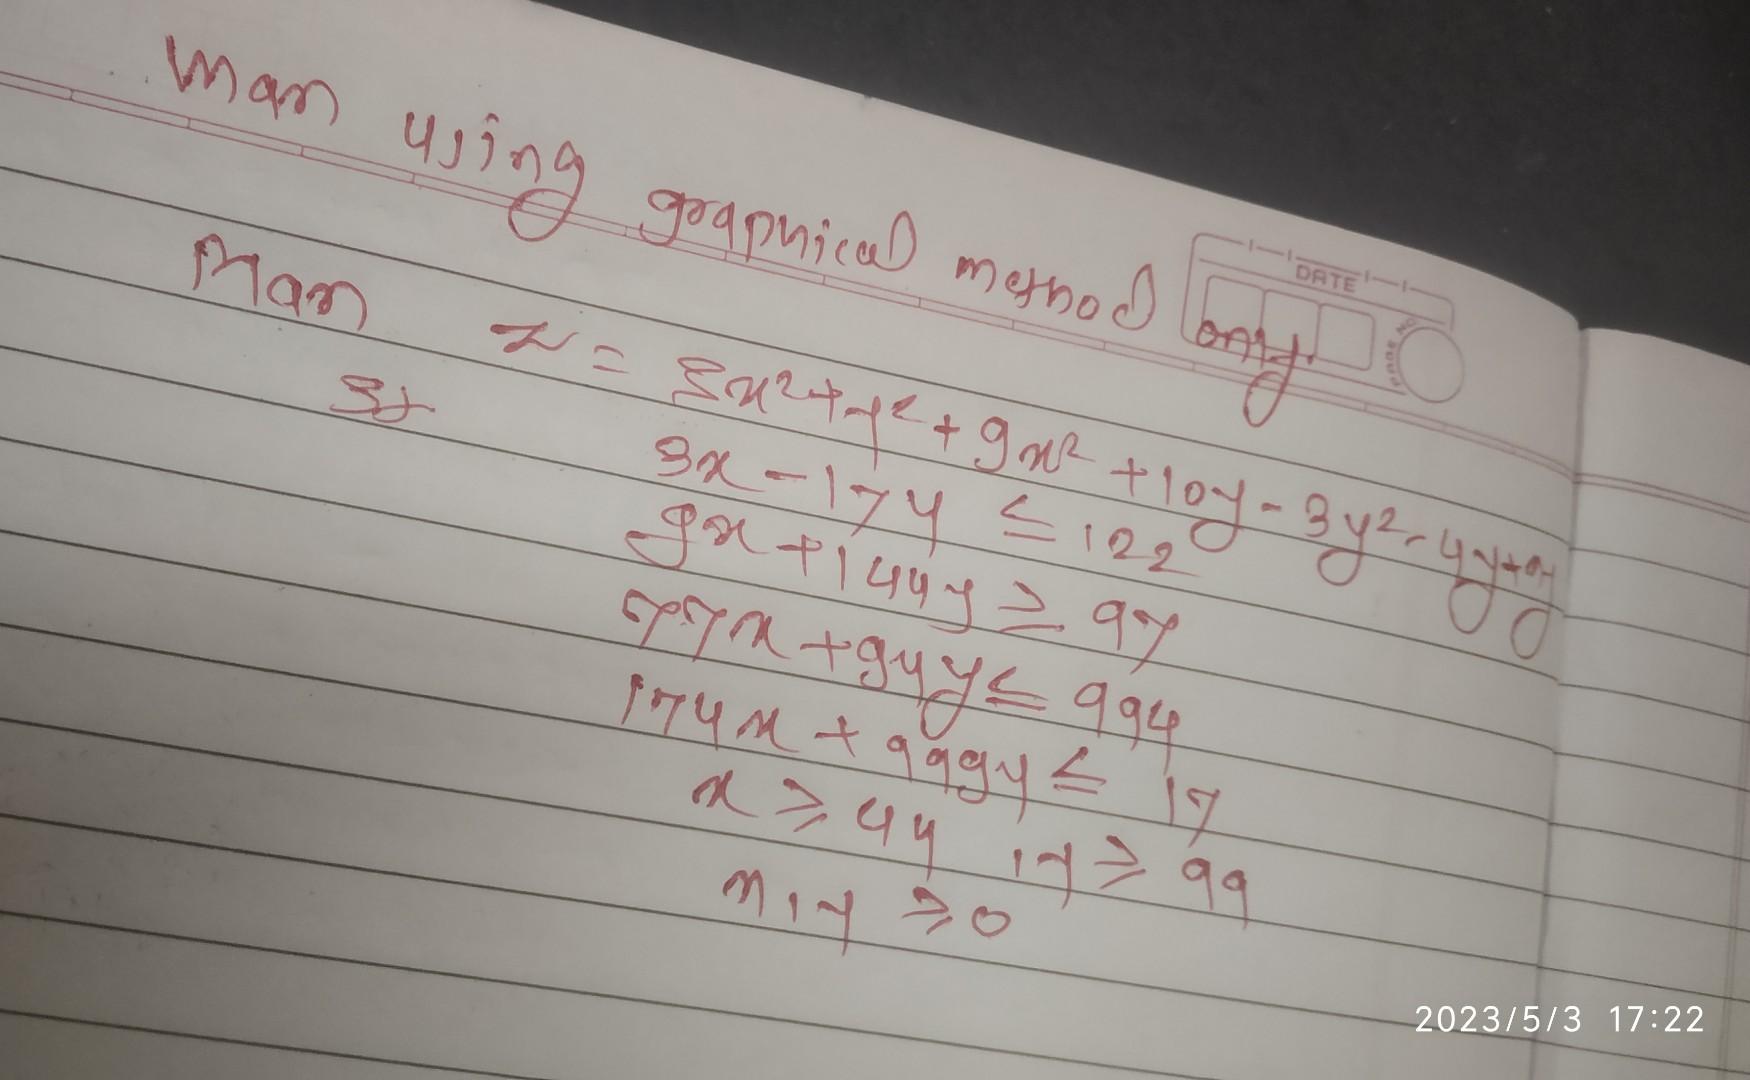 Max using graphical method only.
DATE
PAGE NO
Max z = 5x²+y²+9x²+10y-3y²-4y+9y
St 3x-17y ≤ 122
9x+144y ≥ 97
77x+94y ≤ 994
174x + 999y ≤ 17
x ≥ 44 , y ≥ 99
x, y ≥ 0
2023/5/3 17:22